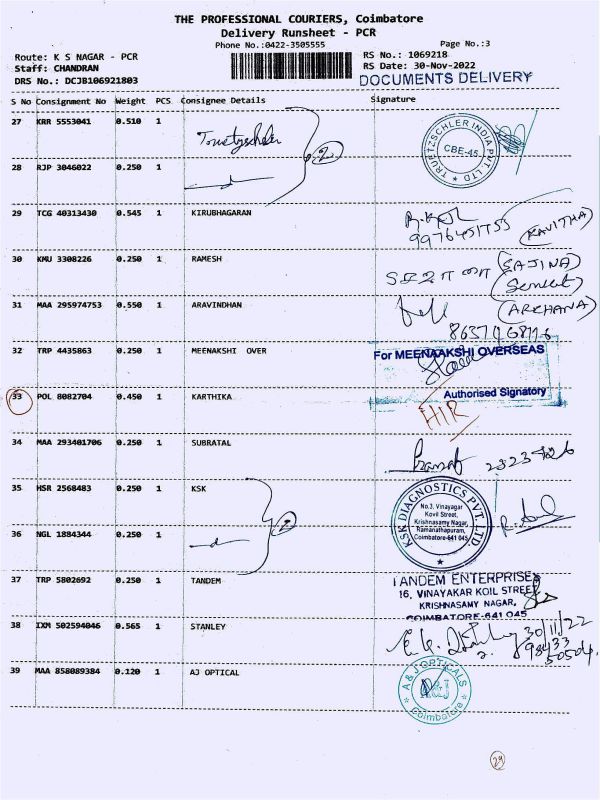 THE PROFESSIONAL COURIERS, Coimbatore
Delivery Runsheet - PCR
Phone No.:0422-3505555
Page No.:3
Route: K S NAGAR - PCR
RS No.: 1069218
Staff: CHANDRAN
RS Date: 30-Nov-2022
DRS No.: DCJB106921803
DOCUMENTS DELIVERY
S No Consignment No Weight PCS Consignee Details Signature
27 KRR 5553041 0.510 1
TRUETZSCHLER INDIA PVT. LTD
CBE-45
28 RJP 3046022 0.250 1
29 TCG 40313430 0.545 1 KIRUBHAGARAN
(KAVITHA)
30 KMU 3308226 0.250 1 RAMESH
(SAJINA)
31 MAA 295974753 0.550 1 ARAVINDHAN
(ARCHANA)
32 TRP 4435863 0.250 1 MEENAKSHI OVER
For MEENAAKSHI OVERSEAS
Authorised Signatory
33 POL 8082704 0.450 1 KARTHIKA
H/R
34 MAA 293401706 0.250 1 SUBRATAL
35 HSR 2568483 0.250 1 KSK
KSK DIAGNOSTICS PVT. LTD.
No.3, Vinayagar
Kovil Street,
Krishnasamy Nagar,
Ramanathapuram,
Coimbatore-641 045
36 NGL 1884344 0.250 1
37 TRP 5802692 0.250 1 TANDEM
TANDEM ENTERPRISES
16, VINAYAKAR KOIL STREET
KRISHNASAMY NAGAR,
COIMBATORE-641 045
38 IXM 502594046 0.565 1 STANLEY
30/11/22
98433
50504
39 MAA 858089384 0.120 1 AJ OPTICAL
A & J OPTICALS
A&J
Coimbatore
29